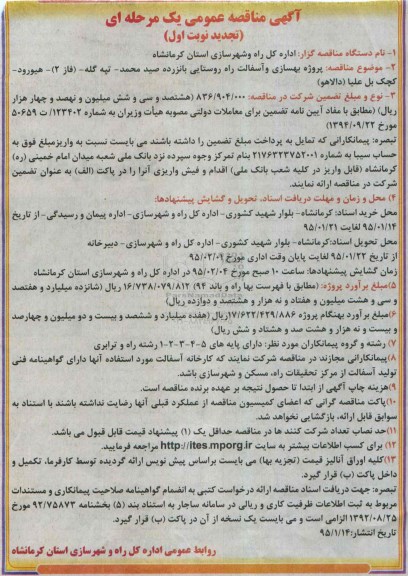 آگهی مناقصه عمومی یک مرحله ای
(تجدید نوبت اول)
۱- نام دستگاه مناقصه گزار: اداره کل راه وشهرسازی استان کرمانشاه
۲- موضوع مناقصه: پروژه بهسازی وآسفالت راه روستایی بانزرده صید محمد- تپه گله- (فاز ۲)- هیورود-
کچک بل علیا (دالاهو)
۳- نوع و مبلغ تضمین شرکت در مناقصه: ۸۳۶/۹۰۴/۰۰۰ (هشتصد و سی و شش میلیون و نهصد و چهار هزار
ریال) (مطابق با مفاد آیین نامه تضمین برای معاملات دولتی مصوبه هیأت وزیران به شماره ۱۲۳۴۰۲/ ت ۵۰۶۵۹
مورخ ۱۳۹۴/۰۹/۲۲)
تبصره: پیمانکارانی که تمایل به پرداخت مبلغ تضمین را داشته باشند می بایست نسبت به واریزمبلغ فوق به
حساب سیبا به شماره ۲۱۷۶۴۳۳۷۵۲۰۰۱ بنام تمرکز وجوه سپرده نزد بانک ملی شعبه میدان امام خمینی (ره)
کرمانشاه (قابل واریز در کلیه شعب بانک ملی) اقدام و فیش واریزی آنرا را در پاکت (الف) به عنوان تضمین
شرکت در مناقصه ارائه نمایند.
۴) محل و زمان و مهلت دریافت اسناد، تحویل و گشایش پیشنهادها:
محل خرید اسناد: کرمانشاه- بلوار شهید کشوری- اداره کل راه و شهرسازی- اداره پیمان و رسیدگی- از تاریخ
۹۵/۰۱/۱۴ لغایت ۹۵/۰۱/۲۱
محل تحویل اسناد:کرمانشاه- بلوار شهید کشوری- اداره کل راه و شهرسازی- دبیرخانه
از تاریخ ۹۵/۰۱/۲۲ لغایت پایان وقت اداری مورخ ۹۵/۰۲/۰۲
زمان گشایش پیشنهادها: ساعت ۱۰ صبح مورخ ۹۵/۰۲/۰۴ در اداره کل راه و شهرسازی استان کرمانشاه
۵)مبلغ برآورد پروژه: (مطابق با فهرست بها راه و باند ۹۴) ۱۶/۷۳۸/۰۷۹/۸۱۲ ریال (شانزده میلیارد و هفتصد
و سی و هشت میلیون و هفتاد و نه هزار و هشتصد و دوازده ریال)
۶)مبلغ برآورد بهنگام پروژه ۱۷/۶۲۲/۴۲۹/۸۸۶ریال (هفده میلیارد و ششصد و بیست و دو میلیون و چهارصد
و بیست و نه هزار و هشت صد و هشتاد و شش ریال)
۷) رشته و گروه پیمانکاران مورد نظر: دارای پایه های ۵-۴-۳-۲-۱ رشته راه و ترابری
۸)پیمانکارانی مجازند در مناقصه شرکت نمایند که کارخانه آسفالت مورد استفاده آنها دارای گواهینامه فنی
تولید آسفالت از مرکز تحقیقات راه، مسکن و شهرسازی باشد.
۹)هزینه چاپ آگهی از ابتدا تا حصول نتیجه بر عهده برنده مناقصه است.
۱۰)پاکت مناقصه گرانی که اعضای کمیسیون مناقصه از عملکرد قبلی آنها رضایت نداشته باشند با استناد به
سوابق قابل ارائه، بازگشایی نخواهد شد.
۱۱)حد نصاب تعداد شرکت کنند ها در مناقصه حداقل یک (۱) پیشنهاد قیمت قابل قبول می باشد.
۱۲) برای کسب اطلاعات بیشتر به سایت http://ites.mporg.ir مراجعه فرمایید.
۱۳)کلیه اوراق آنالیز قیمت (تجزیه بها) می بایست براساس پیش نویس ارائه گردیده توسط کارفرما، تکمیل و
داخل پاکت (ب) قرار گیرد.
تبصره: جهت دریافت اسناد مناقصه ارائه درخواست کتبی به انضمام گواهینامه صلاحیت پیمانکاری و مستندات
مربوط به ثبت اطلاعات ظرفیت کاری و ریالی در سامانه ساجار به استناد بند (۵) بخشنامه ۹۲/۷۵۸۷۳ مورخ
۱۳۹۲/۰۸/۲۵ الزامی است و می بایست یک نسخه از آن در پاکت (ب) قرار گیرد.
تاریخ انتشار:۹۵/۱/۱۴
روابط عمومی اداره کل راه و شهرسازی استان کرمانشاه